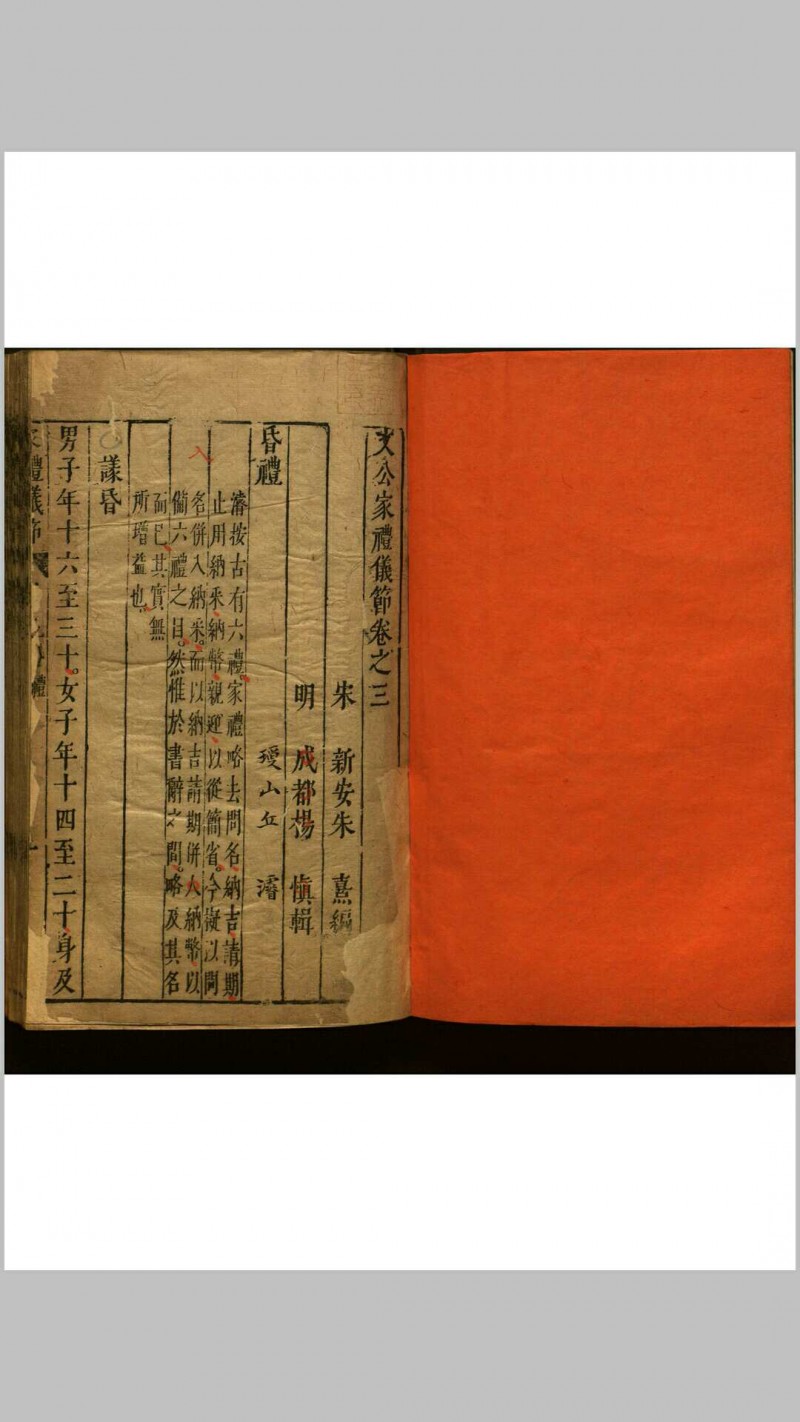 文公家禮儀節卷之三
朱 新安朱 熹編
明 成都楊 慎輯
瓊山丘 濬
昏禮
濬按古有六禮家禮略去問名納吉請期
止用納采納幣親迎以從簡省今擬以問
名併入納采而以納吉請期併入納幣以
備六禮之目然惟於書辭之間略及其名
而已其實無
所增益也
議昏
男子年十六至三十女子年十四至二十身及
家禮儀節